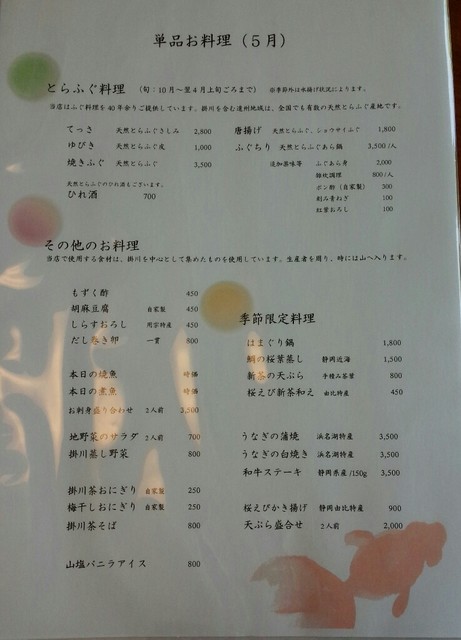 単品お料理（５月）
とらふぐ料理 （旬：10月～翌4月上旬ごろまで） ※季節外は水揚げ状況によります。
当店はふぐ料理を40年余りご提供しています。掛川を含む遠州地域は、全国でも有数の天然とらふぐ産地です。
てっさ 天然とらふぐさしみ 2,800 唐揚げ 天然とらふぐ、ショウサイふぐ 1,800
ゆびき 天然とらふぐ皮 1,000 ふぐちり 天然とらふぐあら鍋 3,500 /人
焼きふぐ 天然とらふぐ 3,500 追加薬味等 ふぐあら身 2,000
雑炊調理 800/人
天然とらふぐのひれ酒もございます。 ポン酢（自家製） 300
ひれ酒 700 刻み青ねぎ 100
紅葉おろし 100
その他のお料理
当店で使用する食材は、掛川を中心として集めたものを使用しています。生産者を周り、時には山へ入ります。
もずく酢 450
胡麻豆腐 自家製 450
しらすおろし 用宗特産 450
だし巻き卵 一貫 800
本日の焼魚 時価
本日の煮魚 時価
お刺身盛り合わせ 2人前 3,500
地野菜のサラダ 2人前 700
掛川蒸し野菜 800
掛川茶おにぎり 自家製 250
梅干しおにぎり 自家製 250
掛川茶そば 800
山塩バニラアイス 800
季節限定料理
はまぐり鍋 1,800
鯛の桜葉蒸し 静岡近海 1,500
新茶の天ぷら 手積み茶葉 800
桜えび新茶和え 由比特産 450
うなぎの蒲焼 浜名湖特産 3,500
うなぎの白焼き 浜名湖特産 3,500
和牛ステーキ 静岡県産/150g 3,500
桜えびかき揚げ 静岡由比特産 900
天ぷら盛合せ 2人前 2,000